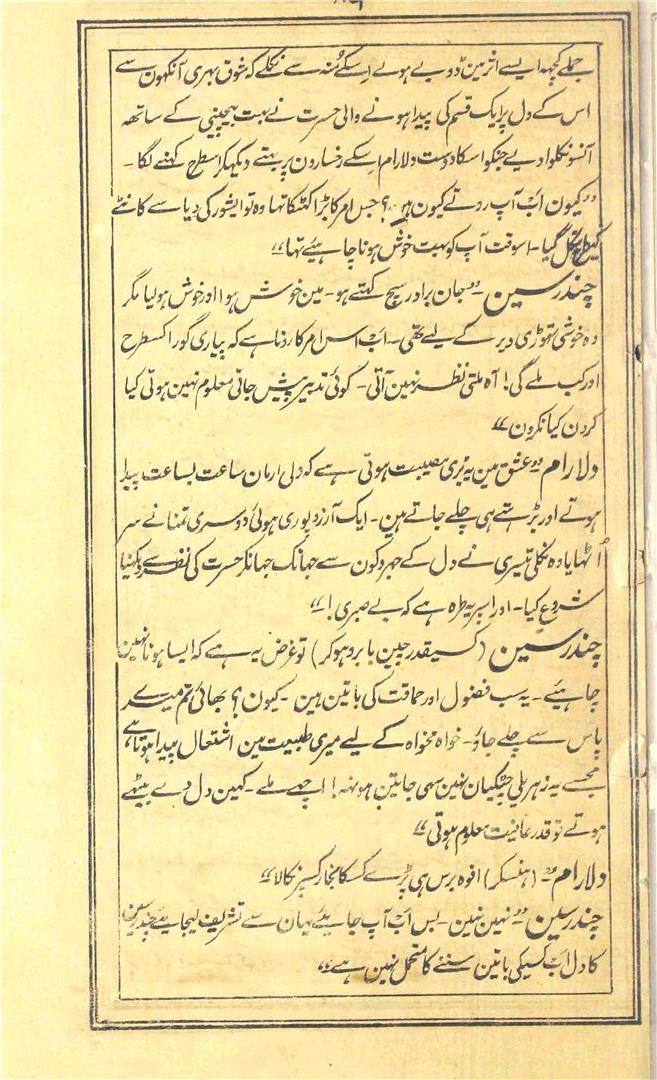 جملے کچھہ ایسے اثر مین ڈوبے ہوئے اسکے مُنہ سے نکلے کہ شوق بہری آنکہون سے
اس کے دل پر ایک قسم کی پیدا ہونے والی حسرت نے بہت بیچینی کے ساتھہ
آنسو نکلوا دیے جنکو اسکا دوست دلارام اسکے رخسارون پر بہتے دیکہکر اسطرح کہنے لگا۔
"کیون اب آپ روتے کیون ہین؟ جس امر کا بڑا کھٹکا تہا وہ تو ایشور کی دیا سے کانٹے
کیطرح نکل گیا۔ اسوقت آپ کو بہت خوش ہونا چاہیئے تہا"
چندرسین۔ "جان برادر سچ کہتے ہو۔ مین خوش ہوا اور خوش ہولیا مگر
وہ خوشی تہوڑی دیر کے لیے تھی۔ اب اس امر کا رونا ہے کہ پیاری گورا کسطرح
اور کب ملے گی! آہ ملتی نظر نہین آتی۔ کوئی تدبیر پیش جاتی معلوم نہین ہوتی کیا
کرون کیا نکرون"
دلارام "عشق مین یہ بُری مصیبت ہوتی ہے کہ دلی ارمان ساعت بساعت پیدا
ہوتے اور بڑہتے ہی چلے جاتے ہین۔ ایک آرزو پوری ہوئی دوسری تمنا نے سر
اُٹہایا وہ نکلی تیسری نے دل کے جہروکون سے جہانک جہانکر حسرت کی نظر سے دیکہنا
شروع کیا۔ اور اسپر یہ طرہ ہے کہ بے صبری!"
چندرسین (کسیقدر چین بابرو ہوکر) تو غرض یہ ہے کہ ایسا ہونا نہین
چاہیئے۔ یہ سب فضول اور حماقت کی باتین ہین۔ کیون؟ بھائی تم میرے
پاس سے چلے جاؤ۔ خواہ مخواہ کے لیے میری طبیعت مین اشتعال پیدا ہوتا ہے
مجھسے یہ زہریلی چٹکیان نہین سہی جاتین ہونہہ! اچھے ملے۔ کہین دل دے بیٹھے
ہوتے تو قدر عافیت معلوم ہوتی"
دلارام۔ (ہنسکر) "افوہ برس ہی پڑے کسکا بخار کسپر نکالا"
چندرسین "نہین نہین۔ بس اب آپ جایئے یہان سے تشریف لیجایئے چندرسین
کا دل اب کسیکی باتین سننے کا متحمل نہین ہے"